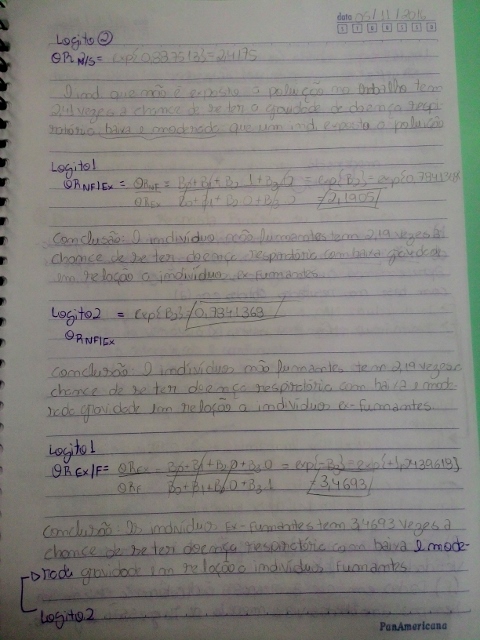 data 05/11/2016
Logito ②
OR N/S = exp{0.8875131} = 2,4175
Ind. que não é exposto a poluição no trabalho tem
2,41 vezes a chance de se ter a gravidade de doença respi-
ratória baixa e moderada que um ind. exposto a poluição
Logito 1
OR NF/Ex = OR NF = = exp{B2} = exp{0.7841
OR Ex = 2,1905
Conclusão: O indivíduo não fumantes tem 2,19 vezes a
chance de se ter doença respiratória com baixa gravidade
em relação a indivíduo ex-fumantes
Logito 2 = exp{B2} 0,7841369
OR NF/Ex
Conclusão: O indivíduo não fumantes tem 2,19 vezes a
chance de se ter doença respiratória com baixa e mode-
rada gravidade em relação a indivíduo ex-fumantes
Logito 1
OR Ex/F = OR Ex = = exp{-B3} =
OR F = 3,4693
Conclusão: Os indivíduo Ex-fumantes tem 3,4693 vezes a
chance de se ter doença respiratória com baixa e mode-
rada gravidade em relação a indivíduo fumantes
Logito 2
PanAmericana